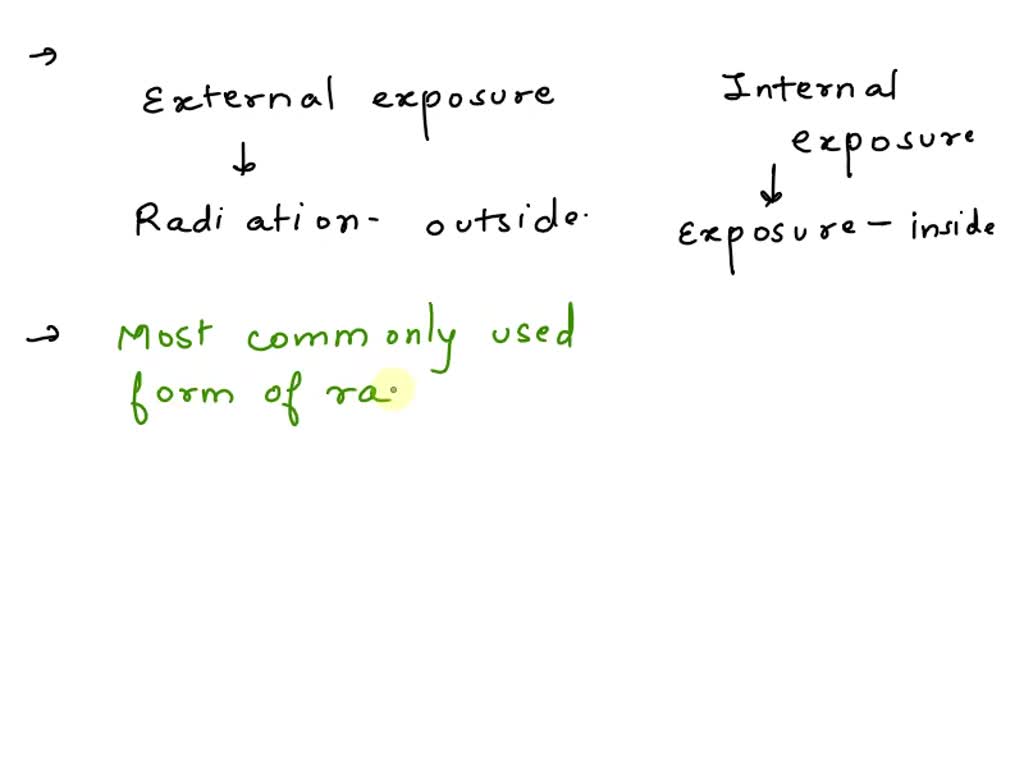 →
External exposure
↓
Radiation - outside.
Internal
exposure
↓
Exposure - inside
→ Most commonly used
form of ra